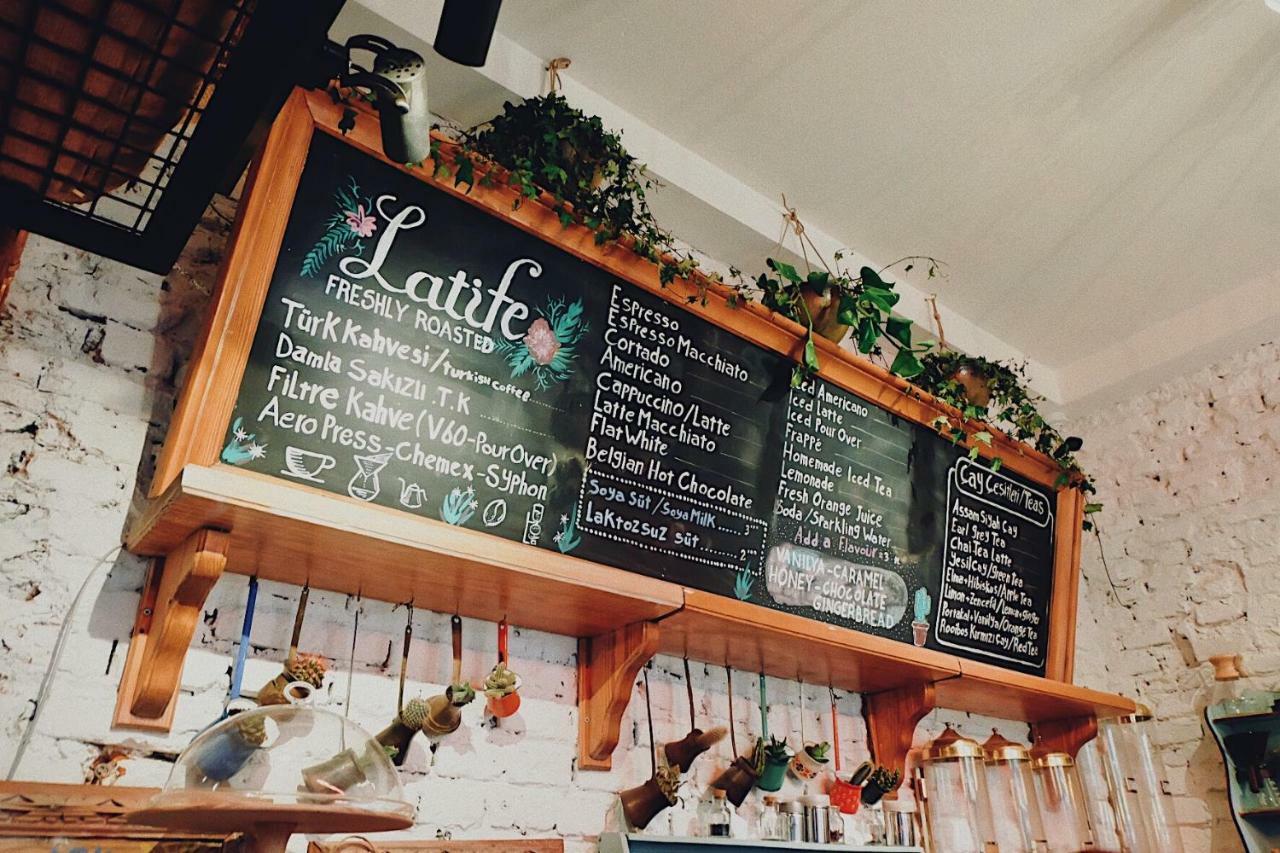 Latife
FRESHLY ROASTED
Türk Kahvesi/Turkish Coffee........
Damla Sakızlı .T.K ................
Filtre Kahve(V60-Pour Over)
Aero Press-Chemex-Syphon
Espresso
Espresso Macchiato
Cortado
Americano
Cappuccino/Latte
Latte Macchiato
Flat White
Belgian Hot Chocolate
Soya Süt/Soya Milk....3
Laktozsuz Süt........2
Iced Americano
Iced Latte
Iced Pour Over
Frappé
Homemade Iced Tea
Lemonade
Fresh Orange Juice
Soda/Sparkling Water
Add a Flavour:3
VANILYA-CARAMEL
HONEY-CHOCOLATE
GINGERBREAD
Çay Çeşitleri/Teas
Assam Siyah Çay
Earl Grey Tea
Chai Tea Latte
Yeşil Çay/Green Tea
Elma+Hibiskus/Apple Tea
Limon+Zencefil/Lemon+ginger
Portakal+Vanilya/Orange Tea
Rooibos Kırmızı Çay/Red Tea